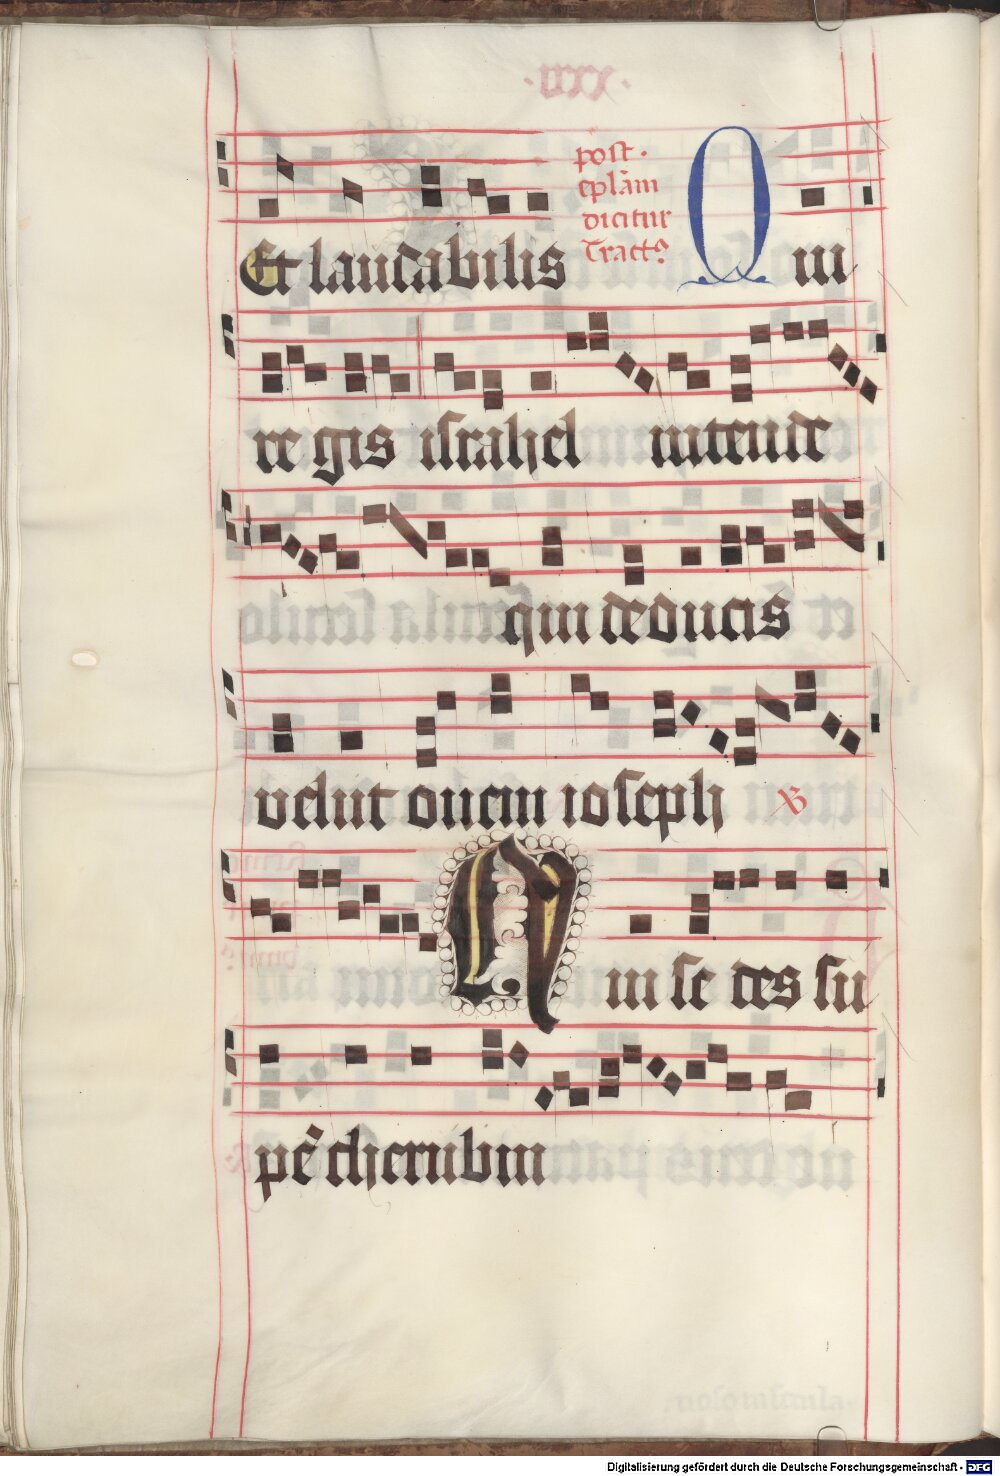 post.
eplãm
dicitur
Tractꝰ
Et laudabilis Q ui
re gis israhel intende
qui deducis
velut ouem ioseph ℣
Q ui se des su
pe᷑ cherubin
Digitalisierung gefördert durch die Deutsche Forschungsgemeinschaft - DFG